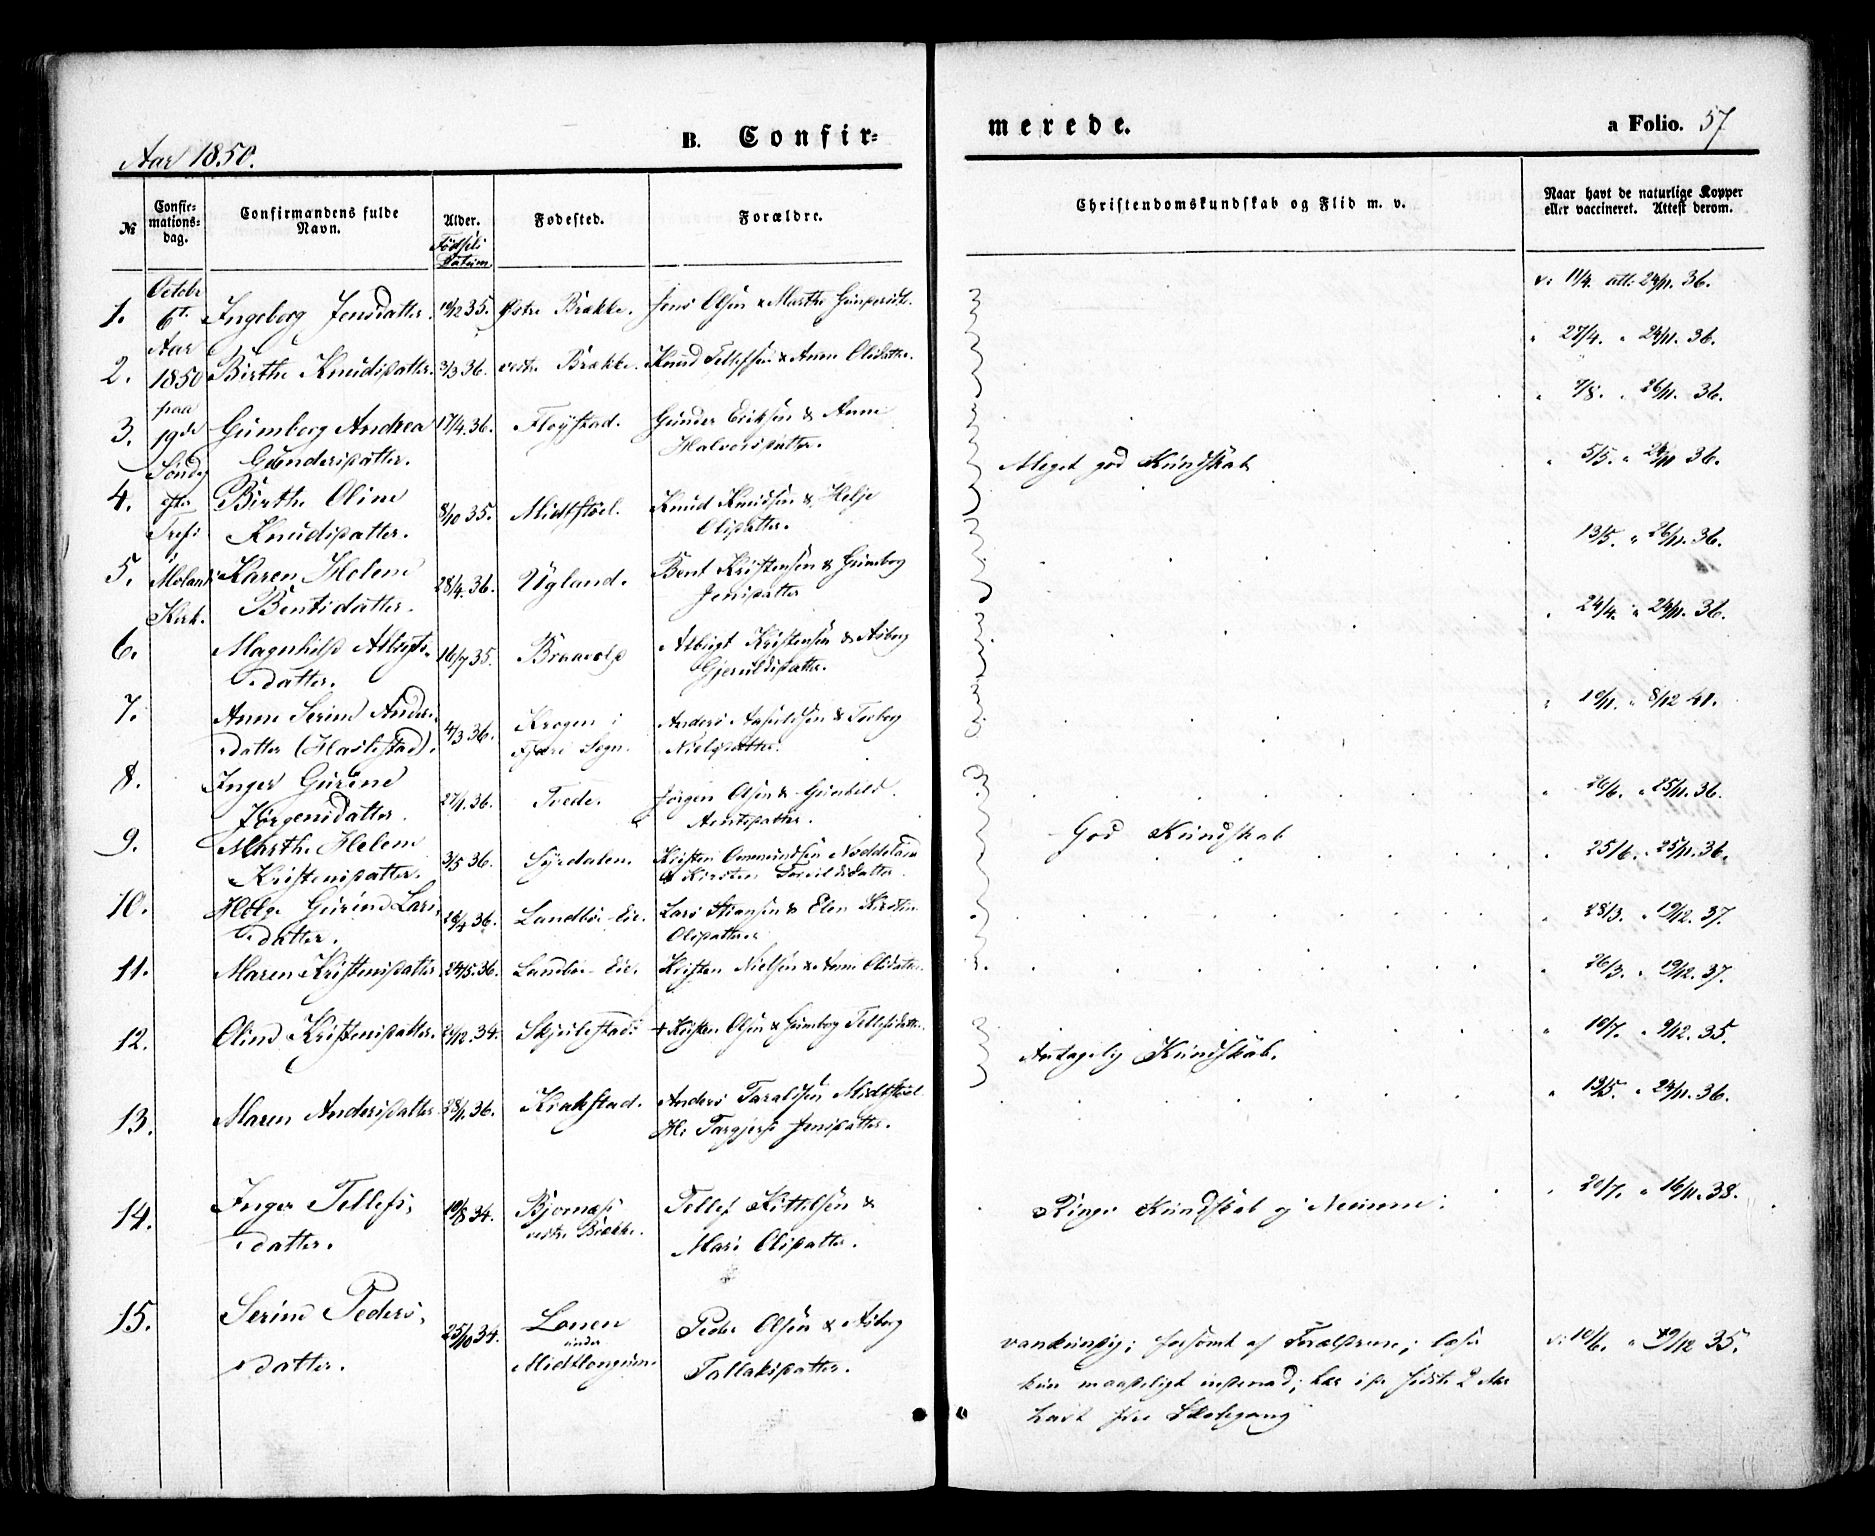 Aar 1850.
B. Confir-
merede.
a Folio. 57
№
Confir-
mations-
dag.
Confirmandens fulde
Navn.
Alder.
Fødsels
Datum
Fødested.
Forældre.
Christendomskundskab og Flid m. v.
Naar havt de naturlige Kopper
eller vaccineret. Attest derom.
Octobr
6te
Aar
1850
paa
19de
Søndag
efter
Trefs
i
Molands
Kirk.
1. Ingeborg Jensdatter. 10/12 35. Østre Brække. Jens Olsen & Marthe v: 11/4. att: 24/11. 36.
2. Birthe Knudsdatter. 3/3 36. vestre Brække. Knud Tellefsen & Anne Olsdatter. " 27/4. " 24/11. 36.
3. Gumborg Andrea 17/4. 36. Fløystad. Gunder Eriksen & Anne " 7/8. " 26/11. 36.
Gundersdatter. Halvorsdatter.
Meget god Kundskab " 5/5. " 24/11 36.
4. Birthe Oline 8/10 35. Midtstøel. Knud Knudsen & Helje
Knudsdatter. Olsdatter. 13/5. " 26/11. 36.
5. Karen Helene 28/4. 36. Ugland. Bent Kristensen & Gumborg
Bentsdatter. Jensdatter " 24/4. " 24/11. 36.
6. Magnhild Albregts- 16/7 35. Braavold Albregt Kristensen & Asborg
datter. Gjeruldsdatter. " 10/11. " 8/12 41.
7. Anne Serine Anders- 4/3 36. Krogen i Anders & Torborg
datter (Haslestad). Fjære Sogn. Nielsdatter.
8. Inger Gurine 27/1. 36. Tvede. Jørgen Olsen & Gunhild " 26/6. " 25/11. 36.
Jørgensdatter. Arntsdatter.
God Kundskab
9. Marthe Helene 3/5 36. Syrdalen. Kristen Ommundsen Nøddeland " 25/6. " 25/11. 36.
Kristensdatter. & Kirsten
10. Helge Gurine Lars- 18/4 36. Landbøe Eie. Lars Stiansen & Elen Kirstine " 28/3. " 19/12. 37.
datter. Olsdatter
11. Maren Kristensdatter 24/5. 36. Landbøe Eie. Kristen Nielsen & Anne Olsdatter. " 26/3. " 19/12. 37.
12. Oline Kristensdatter. 34. Skjulestad. + Kristen Olsen & Gumborg Tellefsdatter. " 10/7. " 9/12. 35.
Antagelig Kundskab.
13. Maren Andersdatter 28/1. 36. Krakstad. Anders Taraldsen Midtstøel " 13/5. " 24/11. 36.
Jensdatter.
14. Inger Tellefs- 10/8 34. Bjornæs Tellef Kittelsen & Ringe Kundskab og Nemme. " 20/7. " 16/11. 38.
datter. vestre Brække. Mari Olsdatter.
15. Serine Peders- 25/10 34. Lonen Peder Olsen & Asborg vankundig; forsømt af Forældrene; læser v: 10/6. " 19/12 35.
datter. under Tallaksdatter. kun maadeligt indenad; har i de sidste 2 Aar
Midtlongum. havt fri Skolegang